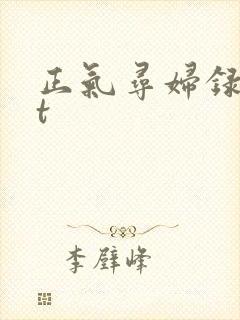 正氣尋婦録
t
李璧峰